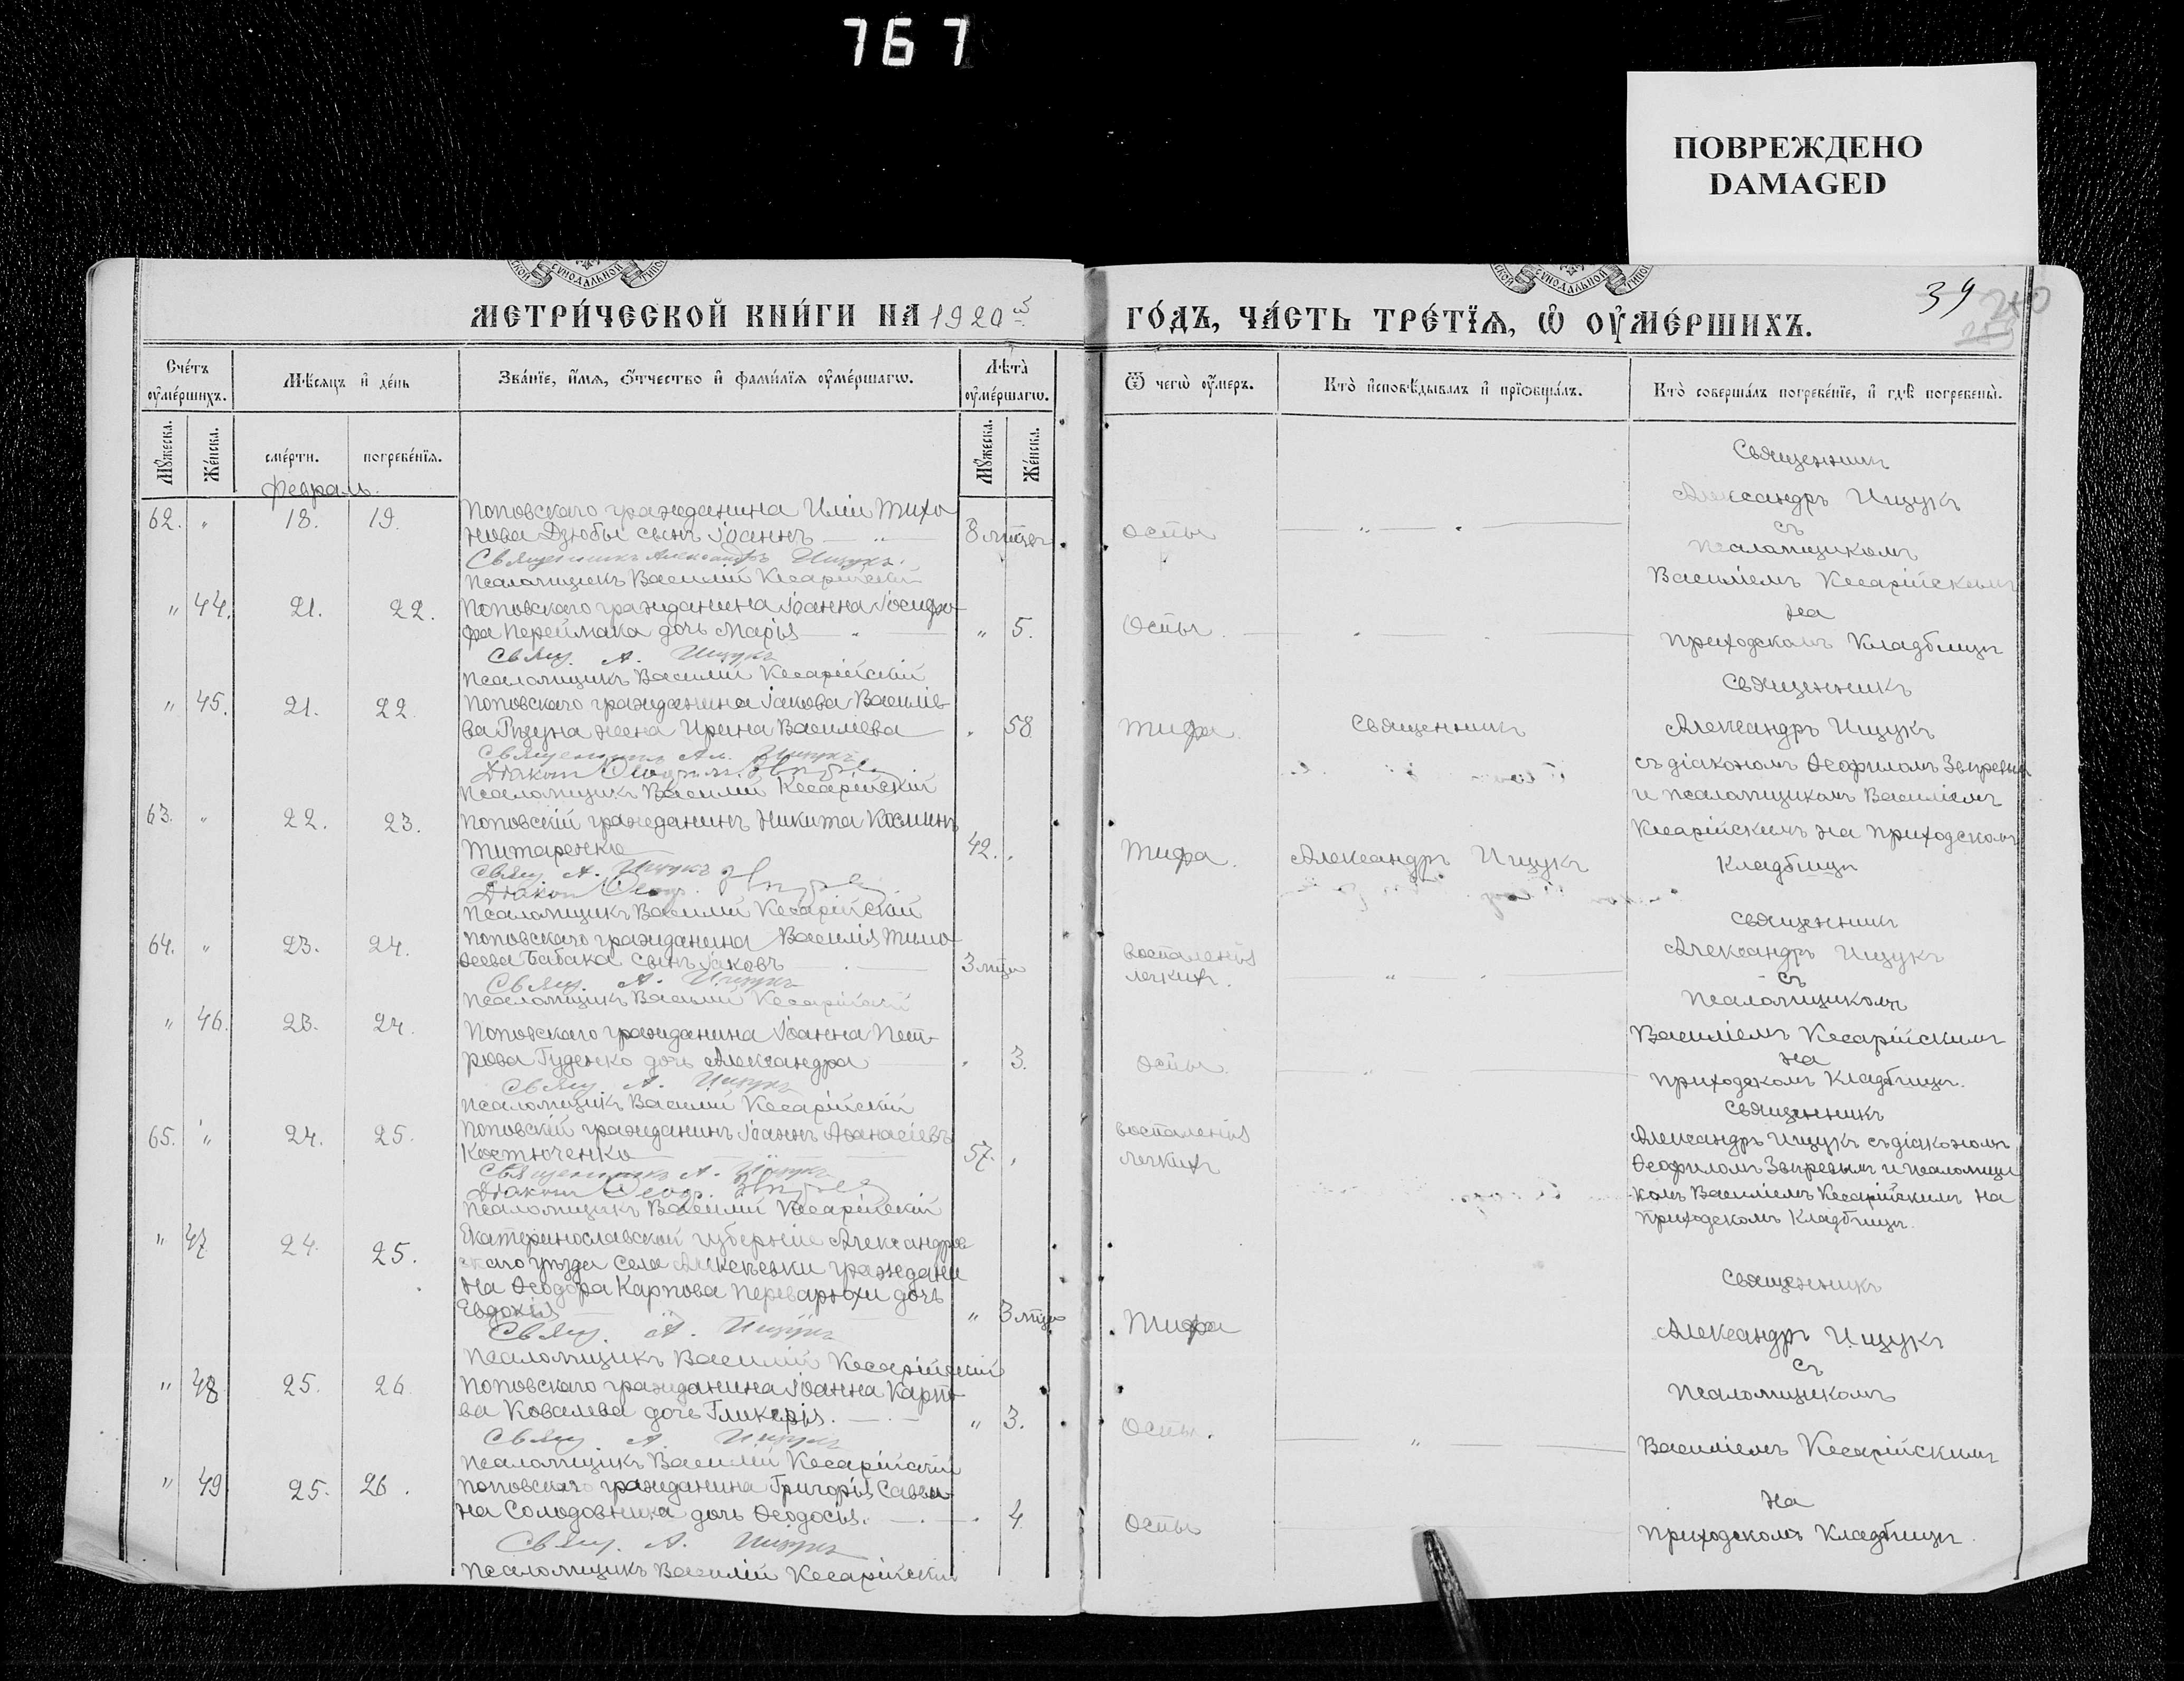 767
ПОВРЕЖДЕНО
DAMAGED
МЕТРИ́ЧЕСКОЙ КНИ́ГИ НА 1920й
ГО́ДЪ, ЧА́СТЬ ТРЕ́ТЇѦ, Ѡ ОУ҆МЕ́РШИХЪ.
39
Сче́тъ оу҆ме́ршихъ.
Мѣ́сѧцъ и҆ де́нь
Зва́нїе, и҆́мѧ, ѻ҆́тчество и҆ фами́лїѧ оу҆ме́ршагѡ.
Лѣ́та оу҆ме́ршагѡ.
Ѿ чегѡ̀ оу҆́меръ.
Кто̀ и҆сповѣ́дывалъ и҆ прїѡбща́лъ.
Кто̀ соверша́лъ погребе́нїе, и҆ гдѣ̀ погребены̀.
Мꙋ́жеска.
Же́нска.
сме́рти.
погребе́нїѧ.
Мꙋ́жеска.
Же́нска.
Февраль.
62. " 18. 19. Поповскаго гражданина Иліи Тихо
нова Дзюбы сынъ Іоаннъ 8 мцевъ Оспы
Священникъ Александръ Ищукъ.
Псаломщикъ Василій Кесарійскій
Священникъ
Александръ Ищукъ
съ
Псаломщикомъ
Василіемъ Кесарійскимъ
на
приходскомъ кладбищѣ
" 44. 21. 22. Поповскаго гражданина Іоанна Іосифо
ва Переймака дочь Марія " 5. Оспы.
Свящ. А. Ищукъ
Псаломщикъ Василій Кесарійскій
" 45. 21. 22 Поповскаго гражданина Іакова Василіе
ва Рʼзуна жена Ирина Василіева 58 Тифа. Священникъ
Священникъ Ал. Ищукъ
Діаконъ Ѳеофилъ Звѣревъ
Псаломщикъ Василій Кесарійскій
Священникъ
Александръ Ищукъ
съ діакономъ Ѳеофиломъ Звѣревым
и псаломщикомъ Василіемъ
Кесарійскимъ на приходскомъ
кладбищѣ
63. " 22. 23. Поповскій гражданинъ Никита Космин
Титаренко 42. Тифа. Александръ Ищукъ
Свящ А. Ищукъ
Діаконъ Ѳеоф. Звѣревъ
Псаломщикъ Василій Кесарійскій
64. " 23. 24. Поповскаго гражданина Василія Тимо
ѳеева Бабака сынъ Іаковъ 3 мца воспаленія
легкихъ.
Свящ. А. Ищукъ
Псаломщикъ Василій Кесарійскій
Священникъ
Александръ Ищукъ
съ
Псаломщикомъ
Василіемъ Кесарійскимъ
на
приходскомъ кладбищѣ.
" 46. 23. 24. Поповскаго гражданина Іоанна Пет-
рова Гуденко дочь Александра 3. Оспы.
Свящ. А. Ищукъ
Псаломщикъ Василій Кесарійскій
65. " 24. 25. Поповскій гражданинъ Іоаннъ Аѳанасіевъ
Костюченко 57. воспаленія
легкихъ
Священникъ А. Ищукъ
Діаконъ Ѳеоф. Звѣревъ
Псаломщикъ Василій Кесарійскій
Священникъ
Александръ Ищукъ съ діакономъ
Ѳеофиломъ Звѣревымъ и псаломщи
комъ Василіемъ Кесарійскимъ на
приходскомъ кладбищѣ.
" 47 24. 25. Екатеринославской губерніи Александров
скаго уѣзда села Алексѣевки граждани
на Ѳеодора Карпова Переварюхи дочь
Евдокія " 3 мца Тифа
Свящ. А. Ищукъ
Псаломщикъ Василій Кесарійскій
Священникъ
Александръ Ищукъ
съ
Псаломщикомъ
Василіемъ Кесарійскимъ
на
приходскомъ кладбищѣ.
" 48 25. 26 Поповскаго гражданина Іоанна Карпо
ва Ковалева дочь Гликерія. " 3. Оспы.
Свящ А. Ищукъ
Псаломщикъ Василій Кесарійскій
" 49 25. 26. Поповскаго гражданина Григорія Савви
на Солодовника дочь Ѳеодосія. 4 Оспы
Свящ. А. Ищукъ
Псаломщикъ Василій Кесарійскій